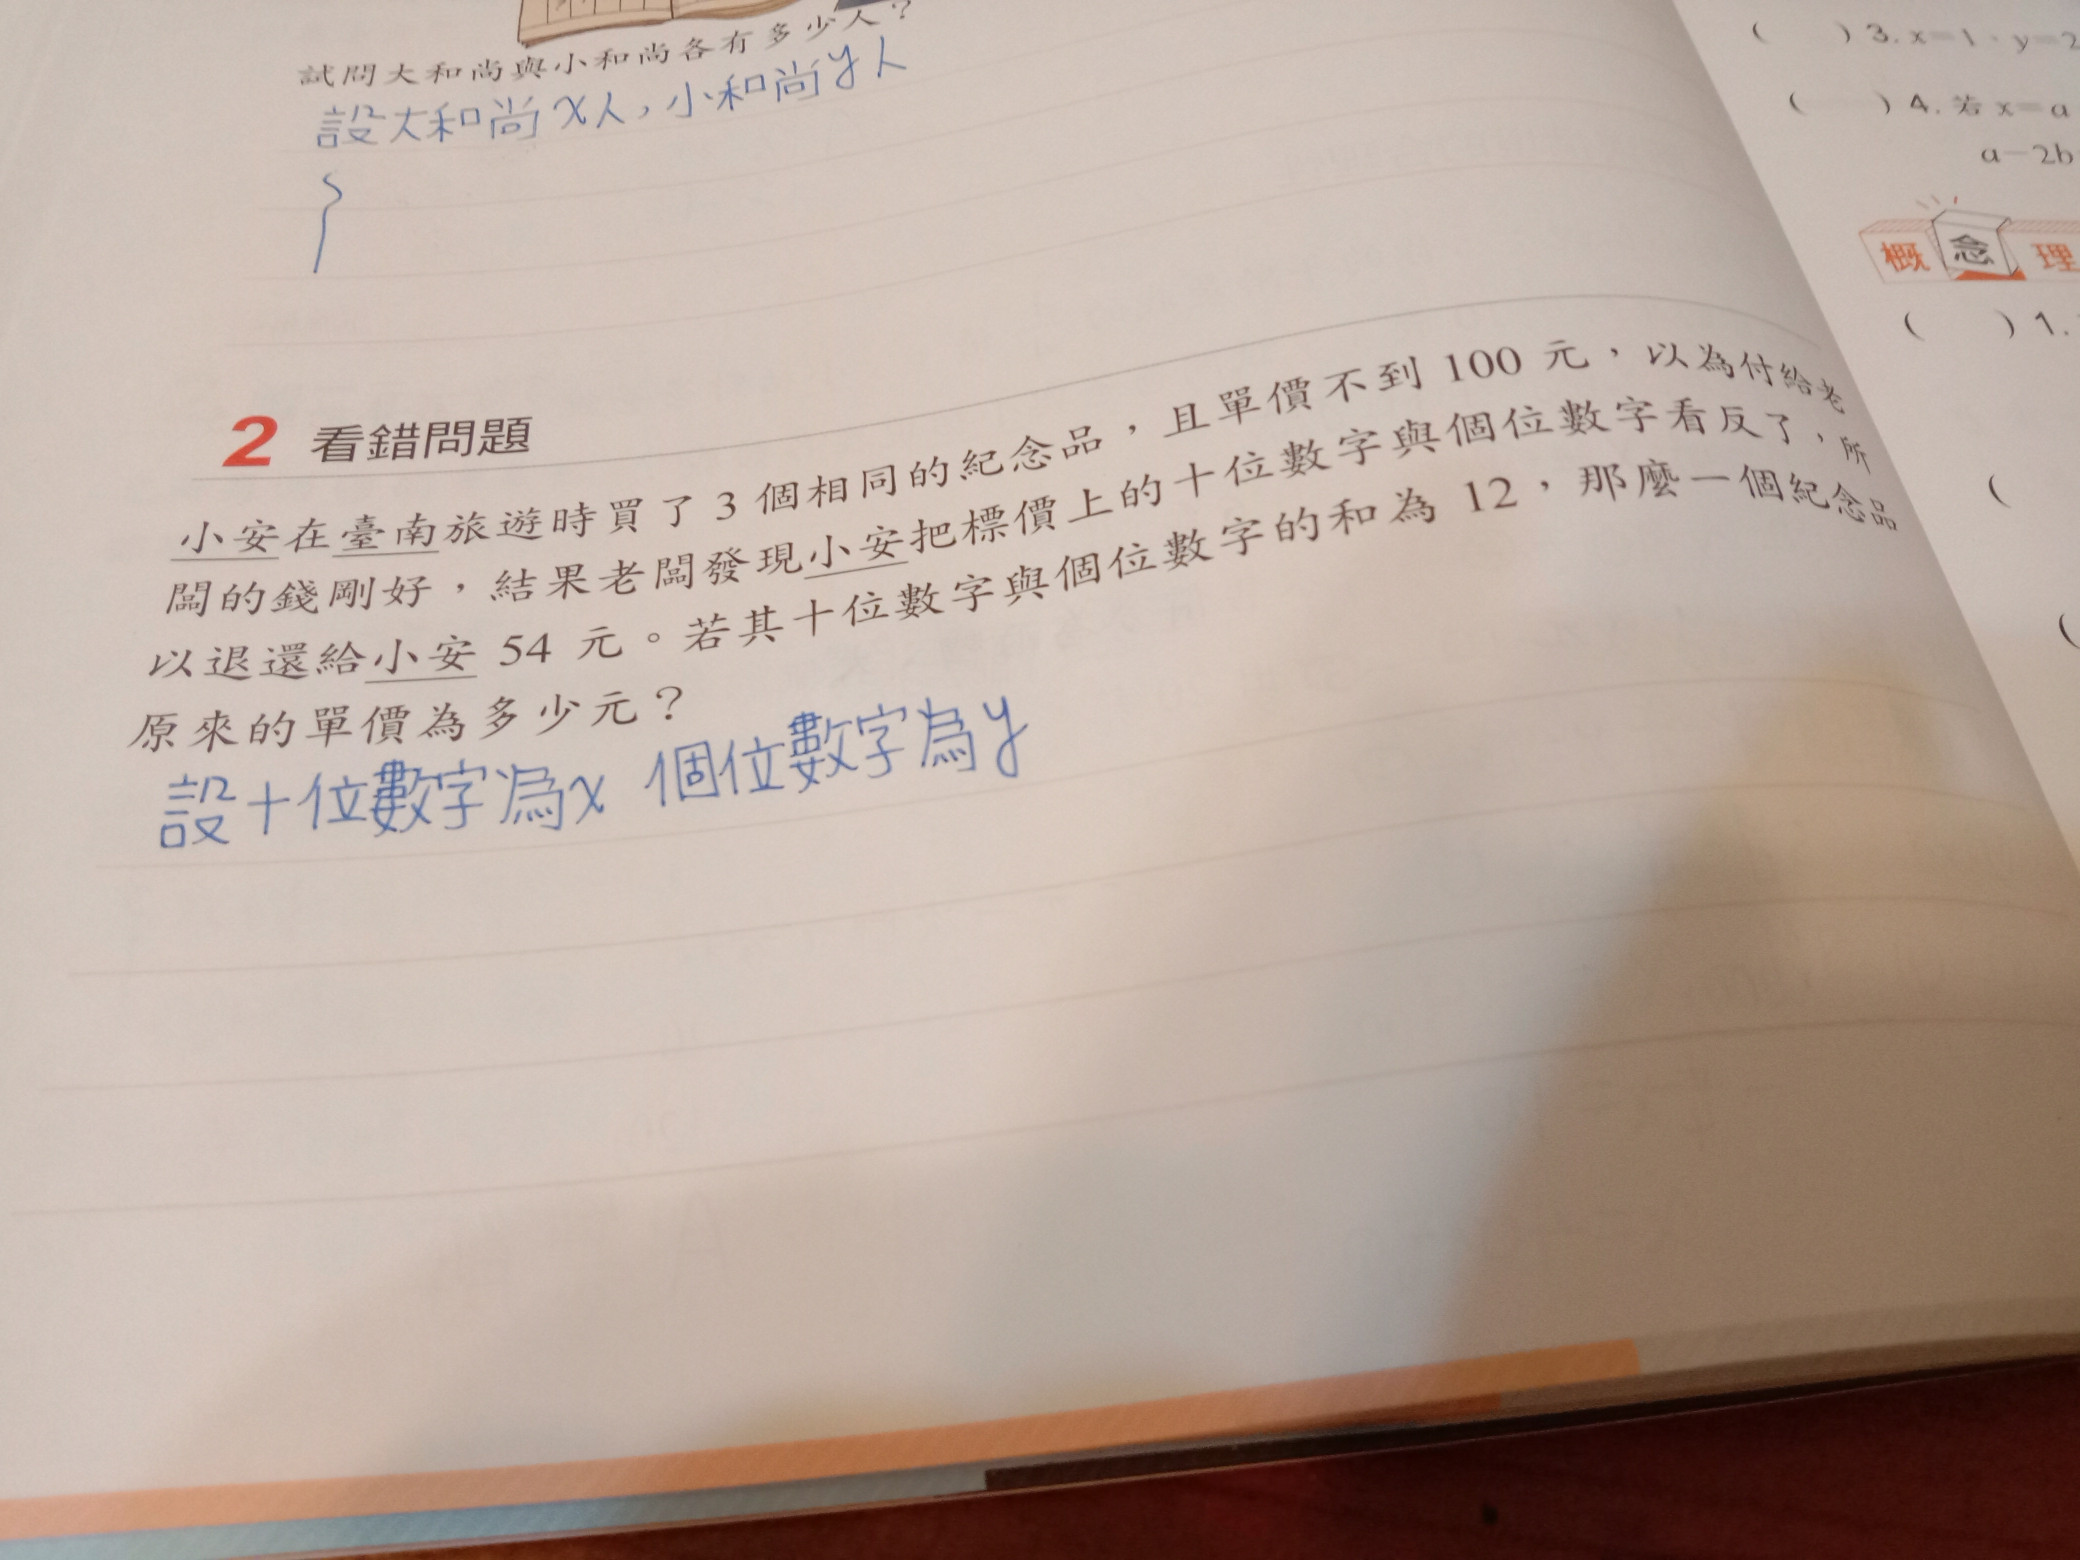 試問大和尚與小和尚各有多少人？
設大和尚x人，小和尚y人
2 看錯問題
小安在臺南旅遊時買了 3 個相同的紀念品，且單價不到 100 元，以為付給老
闆的錢剛好，結果老闆發現小安把標價上的十位數字與個位數字看反了，所
以退還給小安 54 元。若其十位數字與個位數字的和為 12，那麼一個紀念品
原來的單價為多少元？
設十位數字為x 個位數字為y
( ) 3. x=1、y=2
( ) 4. 若 x=a
a-2b
概念理
( ) 1.
(
(